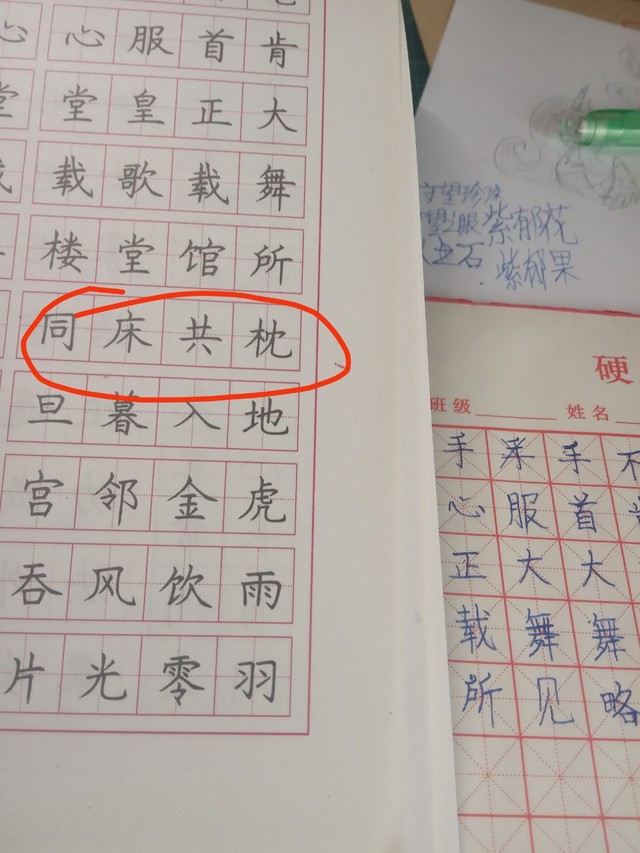 心 心 服 首 肯
堂 堂 皇 正 大
载 载 歌 载 舞
楼 堂 馆 所
同 床 共 枕
旦 暮 入 地
宫 邻 金 虎
吞 风 饮 雨
片 光 零 羽
守望珍珠
望 眼 紫郁花
石 紫郁果
硬
班级 姓名
手 采 手 不
心 服 首 肯
正 大 大
载 舞 舞
所 见 略